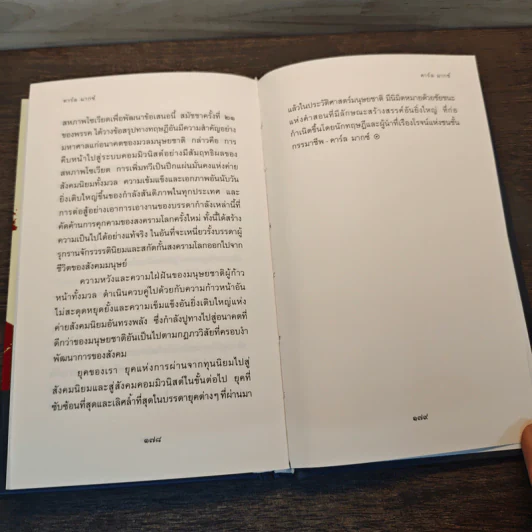 คาร์ล มากซ์
สหภาพโซเวียตเพื่อพัฒนาข้อเสนอนี้ สมัชชาครั้งที่ ๒๑
ของพรรค ได้วางข้อสรุปทางทฤษฎีอันมีความสำคัญอย่าง
มหาศาลแก่อนาคตของมวลมนุษยชาติ กล่าวคือ การ
คืบหน้าไปสู่ระบบคอมมิวนิสต์อย่างมีสัมฤทธิผลของ
สหภาพโซเวียต การเพิ่มทวีเป็นปึกแผ่นมั่นคงแห่งค่าย
สังคมนิยมทั้งมวล ความเข้มแข็งและเอกภาพอันนับวัน
ยิ่งเติบใหญ่ขึ้นของกำลังสันติภาพในทุกประเทศ และ
การต่อสู้อย่างเอาการเอางานของบรรดากำลังเหล่านี้ที่
คัดค้านการคุกคามของสงครามโลกครั้งใหม่ ทั้งนี้ได้สร้าง
ความเป็นไปได้อย่างแท้จริง ในอันที่จะเหนี่ยวรั้งบรรดาผู้
รุกรานจักรวรรดินิยมและสกัดกั้นสงครามโลกออกไปจาก
ชีวิตของสังคมมนุษย์
ความหวังและความใฝ่ฝันของมนุษยชาติผู้ก้าว
หน้าทั้งมวล ดำเนินควบคู่ไปด้วยกับความก้าวหน้าอัน
ไม่สะดุดหยุดยั้งและความเข้มแข็งอันยิ่งเติบใหญ่แห่ง
ค่ายสังคมนิยมอันทรงพลัง ซึ่งกำลังปูทางไปสู่อนาคตที่
ดีกว่าของมนุษยชาติอันเป็นไปตามกฎภววิสัยที่ครอบงำ
พัฒนาการของสังคม
ยุคของเรา ยุคแห่งการผ่านจากทุนนิยมไปสู่
สังคมนิยมและสู่สังคมคอมมิวนิสต์ในขั้นต่อไป ยุคที่
ซับซ้อนที่สุดและเลิศล้ำที่สุดในบรรดายุคต่างๆ ที่ผ่านมา
๑๗๘
คาร์ล มากซ์
แล้วในประวัติศาสตร์มนุษยชาติ มีนิมิตหมายด้วยชัยชนะ
แห่งคำสอนที่มีลักษณะสร้างสรรค์อันยิ่งใหญ่ ที่ก่อ
กำเนิดขึ้นโดยนักทฤษฎีและผู้นำที่เรืองโรจน์แห่งชนชั้น
กรรมาชีพ - คาร์ล มากซ์
๑๗๙